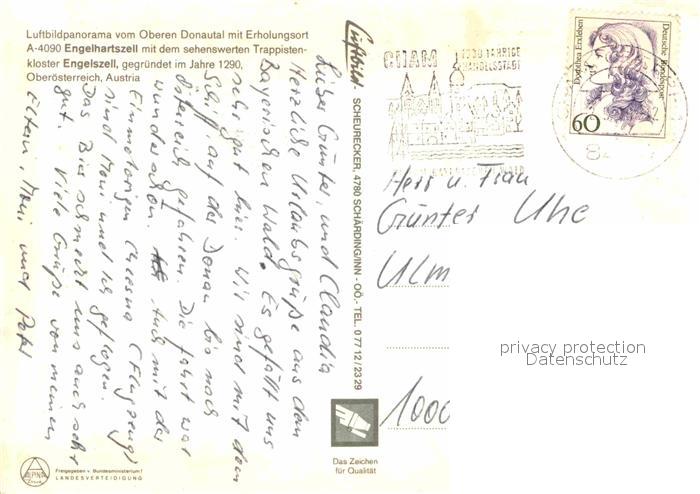 Luftbildpanorama vom Oberen Donautal mit Erholungsort
A-4090 Engelhartszell mit dem sehenswerten Trappisten-
kloster Engelszell, gegründet im Jahre 1290,
Oberösterreich, Austria
Lieber Günter, und Claudia
Herzliche Urlaubsgrüße aus dem
Bayerischen Wald. Es gefällt uns
sehr gut hier. Wir sind mit dem
Schiff auf der Donau bis nach
Östereich gefahren. Die Fahrt war
wunderschön. Auch mit der
Einmotorigen Chessna (Flugzeug)
sind Moni und ich geflogen.
Das Bier schmeckt uns auch sehr
gut. Viele Grüße von meinen
Eltern, Moni und Peter
Freigegeben v. Bundesministerium f
LANDESVERTEIDIGUNG
ALPINA
Luftbild
SCHEURECKER, 4780 SCHÄRDING/INN - OÖ. - TEL. 0 77 12 / 23 29
Das Zeichen
für Qualität
CHAM
JÄHRIGE
HANDELSSTADT
Dorothea Erxleben
Deutsche Bundespost
60
Herr u. Frau
Günter Uhe
Ulm
1000
privacy protection
Datenschutz